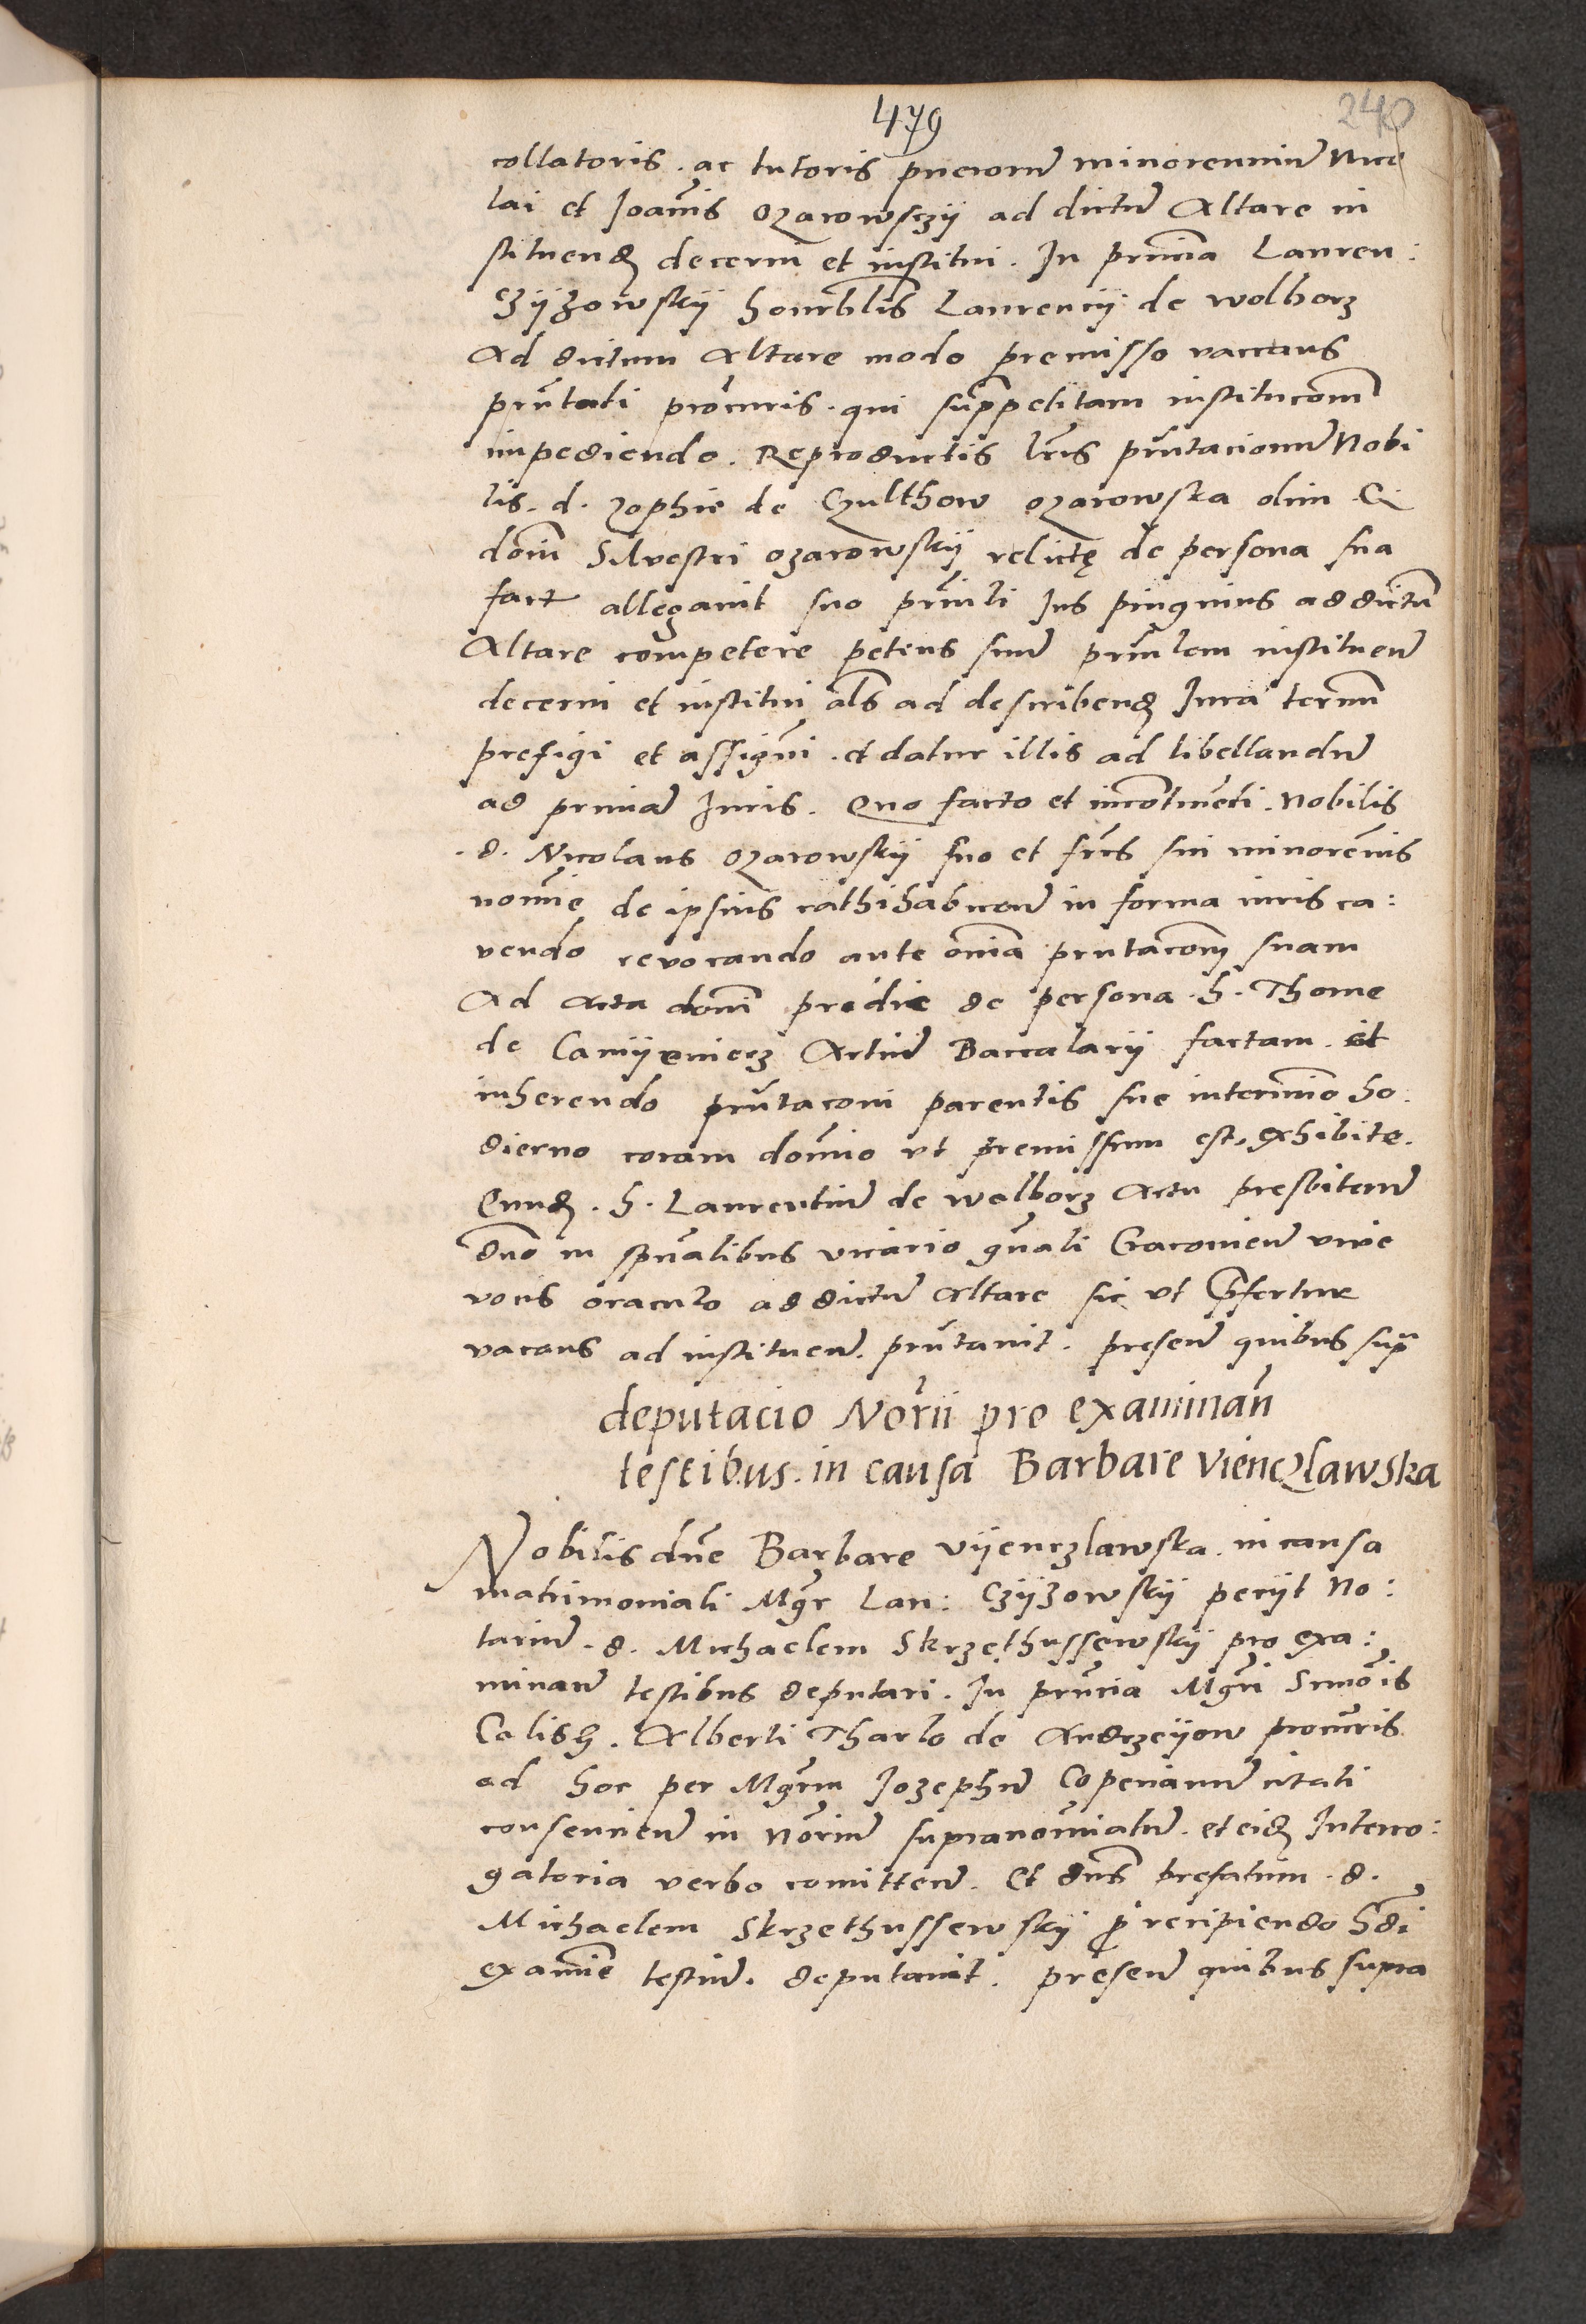 479
240
collatoris. ac tutoris puerorum minorennium Nico
lai et Joannis Ozarowsczij ad dictum Altare in
stituendum decerni et institui. In pruncia Lauren:
Czijzowskij honorabilis Laurencij de wolborz
Ad dictum Altare modo premisso vaccans
pruntati procuris. qui suprapetitam institucom
impediendo. Reproductis lris pruntacionum Nobi
lis. d. zophie de Czulthow ozarowska olim G
domini Silvestri ozarowskij relictę de persona sua
fact allegavit suo pruntati Jus pinguius ad dictum
Altare competere petens suum pruntatem instituen
decerni et institui als ad describendum Jura termin
prefigi et assignari. et datur illis ad libellandum
ad primam Juris. Quo facto et incontinenti. Nobilis
. d. Nicolaus ozarowskij suo et fris sui minorennis
nomine de ipsius rathihabicione in forma iuris ca:
vendo revocando ante omnia pruntacom suam
Ad Acta domini predie de persona. h. Thome
de Camijeniecz Artium Baccalarij factam. et
inherendo pruntaconi parentis sue in termino ho:
dierno coram domino ut premissum est, exhibite.
Eundem. h. Laurentium de wolborz Actu presbiterum
dno in spualibus vicario gnali Cracovien vive
vocis oraculo ad dictum Altare sic ut prefertur
vacans ad instituen. pruntavit. presen quibus supra
deputacio Norii pro examinan
testibus. in causa Barbare Vienczlawska
Nobilis dne Barbare vijenczlawska. in causa
matrimoniali Mgr Lau: Czijzowskij pecijt No:
tarium. d. Michaelem Skrzethussewskij pro exa:
minan testibus deputari. In pruncia Mgri Simonis
Calish. Alberti Tharlo de Andrzeijow procuris
ad hoc per Mgrm Jozephum Copecianum citati
consencien in Norium supranominatum. et eidem Interro:
gatoria verbo comitten. Et dns prefatum. d.
Michaelem Skrzethussewskij pro recipiendo hdi
examine testium. deputavit. presen quibus supra